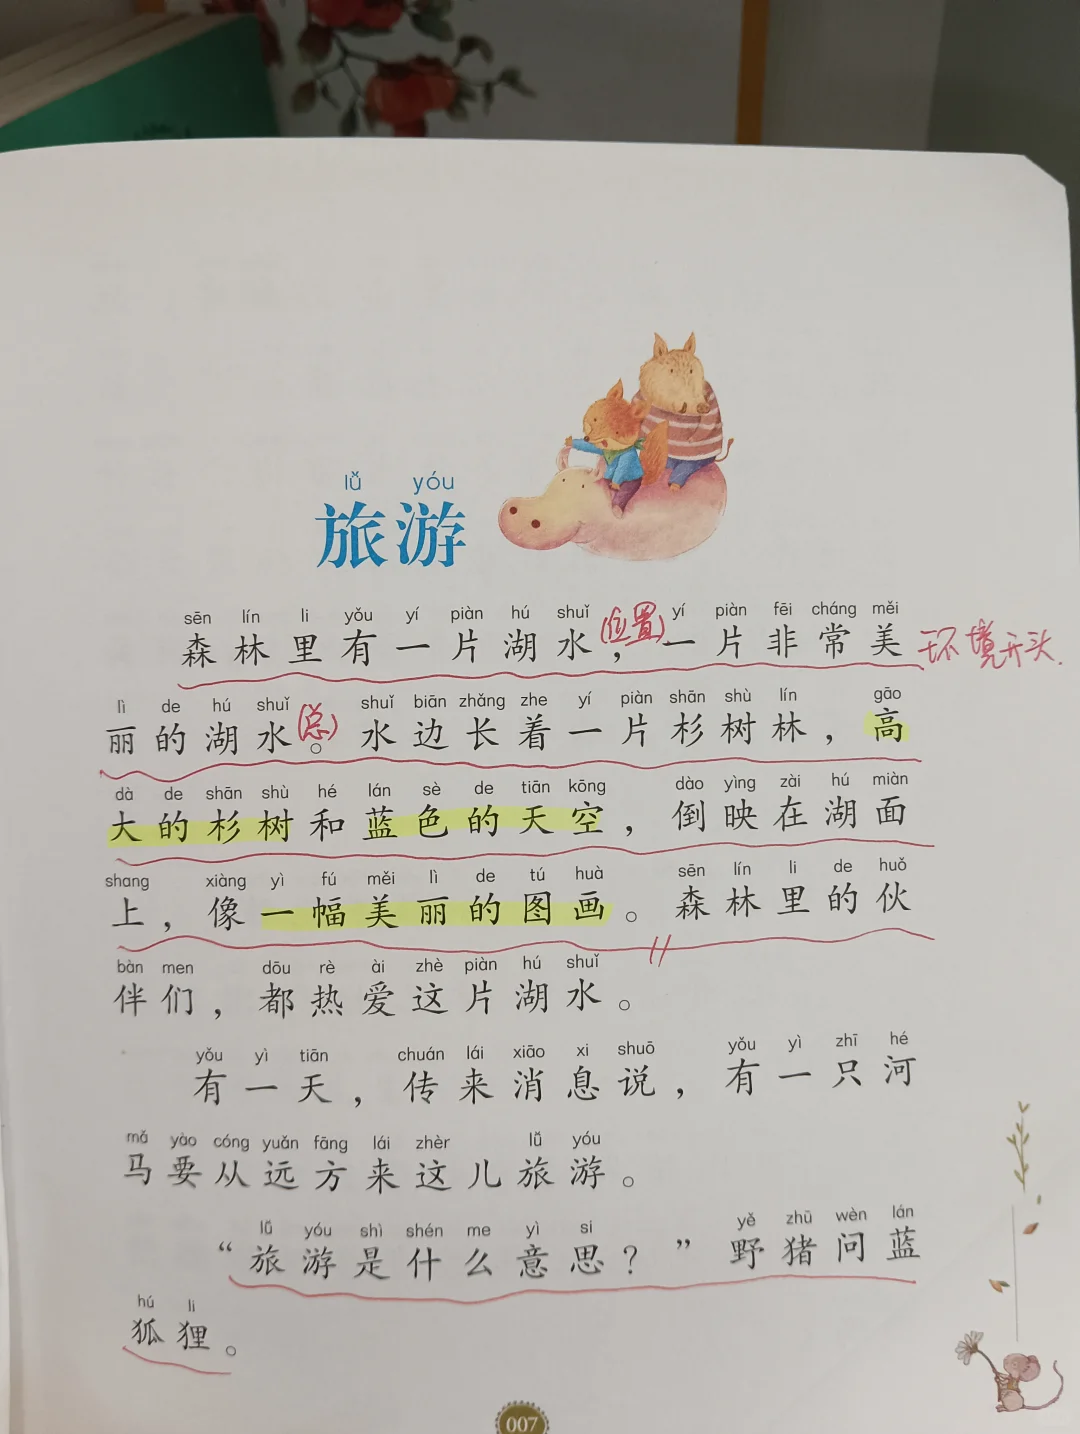 lǚ yóu
旅游
sēn lín li yǒu yí piàn hú shuǐ yí piàn fēi cháng měi
森林里有一片湖水，(位置)一片非常美 环境开头.
lì de hú shuǐ shuǐ biān zhǎng zhe yí piàn shān shù lín gāo
丽的湖水。(总)水边长着一片杉树林，高
dà de shān shù hé lán sè de tiān kōng dào yìng zài hú miàn
大的杉树和蓝色的天空，倒映在湖面
shang xiàng yì fú měi lì de tú huà sēn lín li de huǒ
上，像一幅美丽的图画。森林里的伙
bàn men dōu rè ài zhè piàn hú shuǐ
伴们，都热爱这片湖水。
yǒu yì tiān chuán lái xiāo xi shuō yǒu yì zhī hé
有一天，传来消息说，有一只河
mǎ yào cóng yuǎn fāng lái zhèr lǚ yóu
马要从远方来这儿旅游。
lǚ yóu shì shén me yì si yě zhū wèn lán
“旅游是什么意思？”野猪问蓝
hú li
狐狸。
007